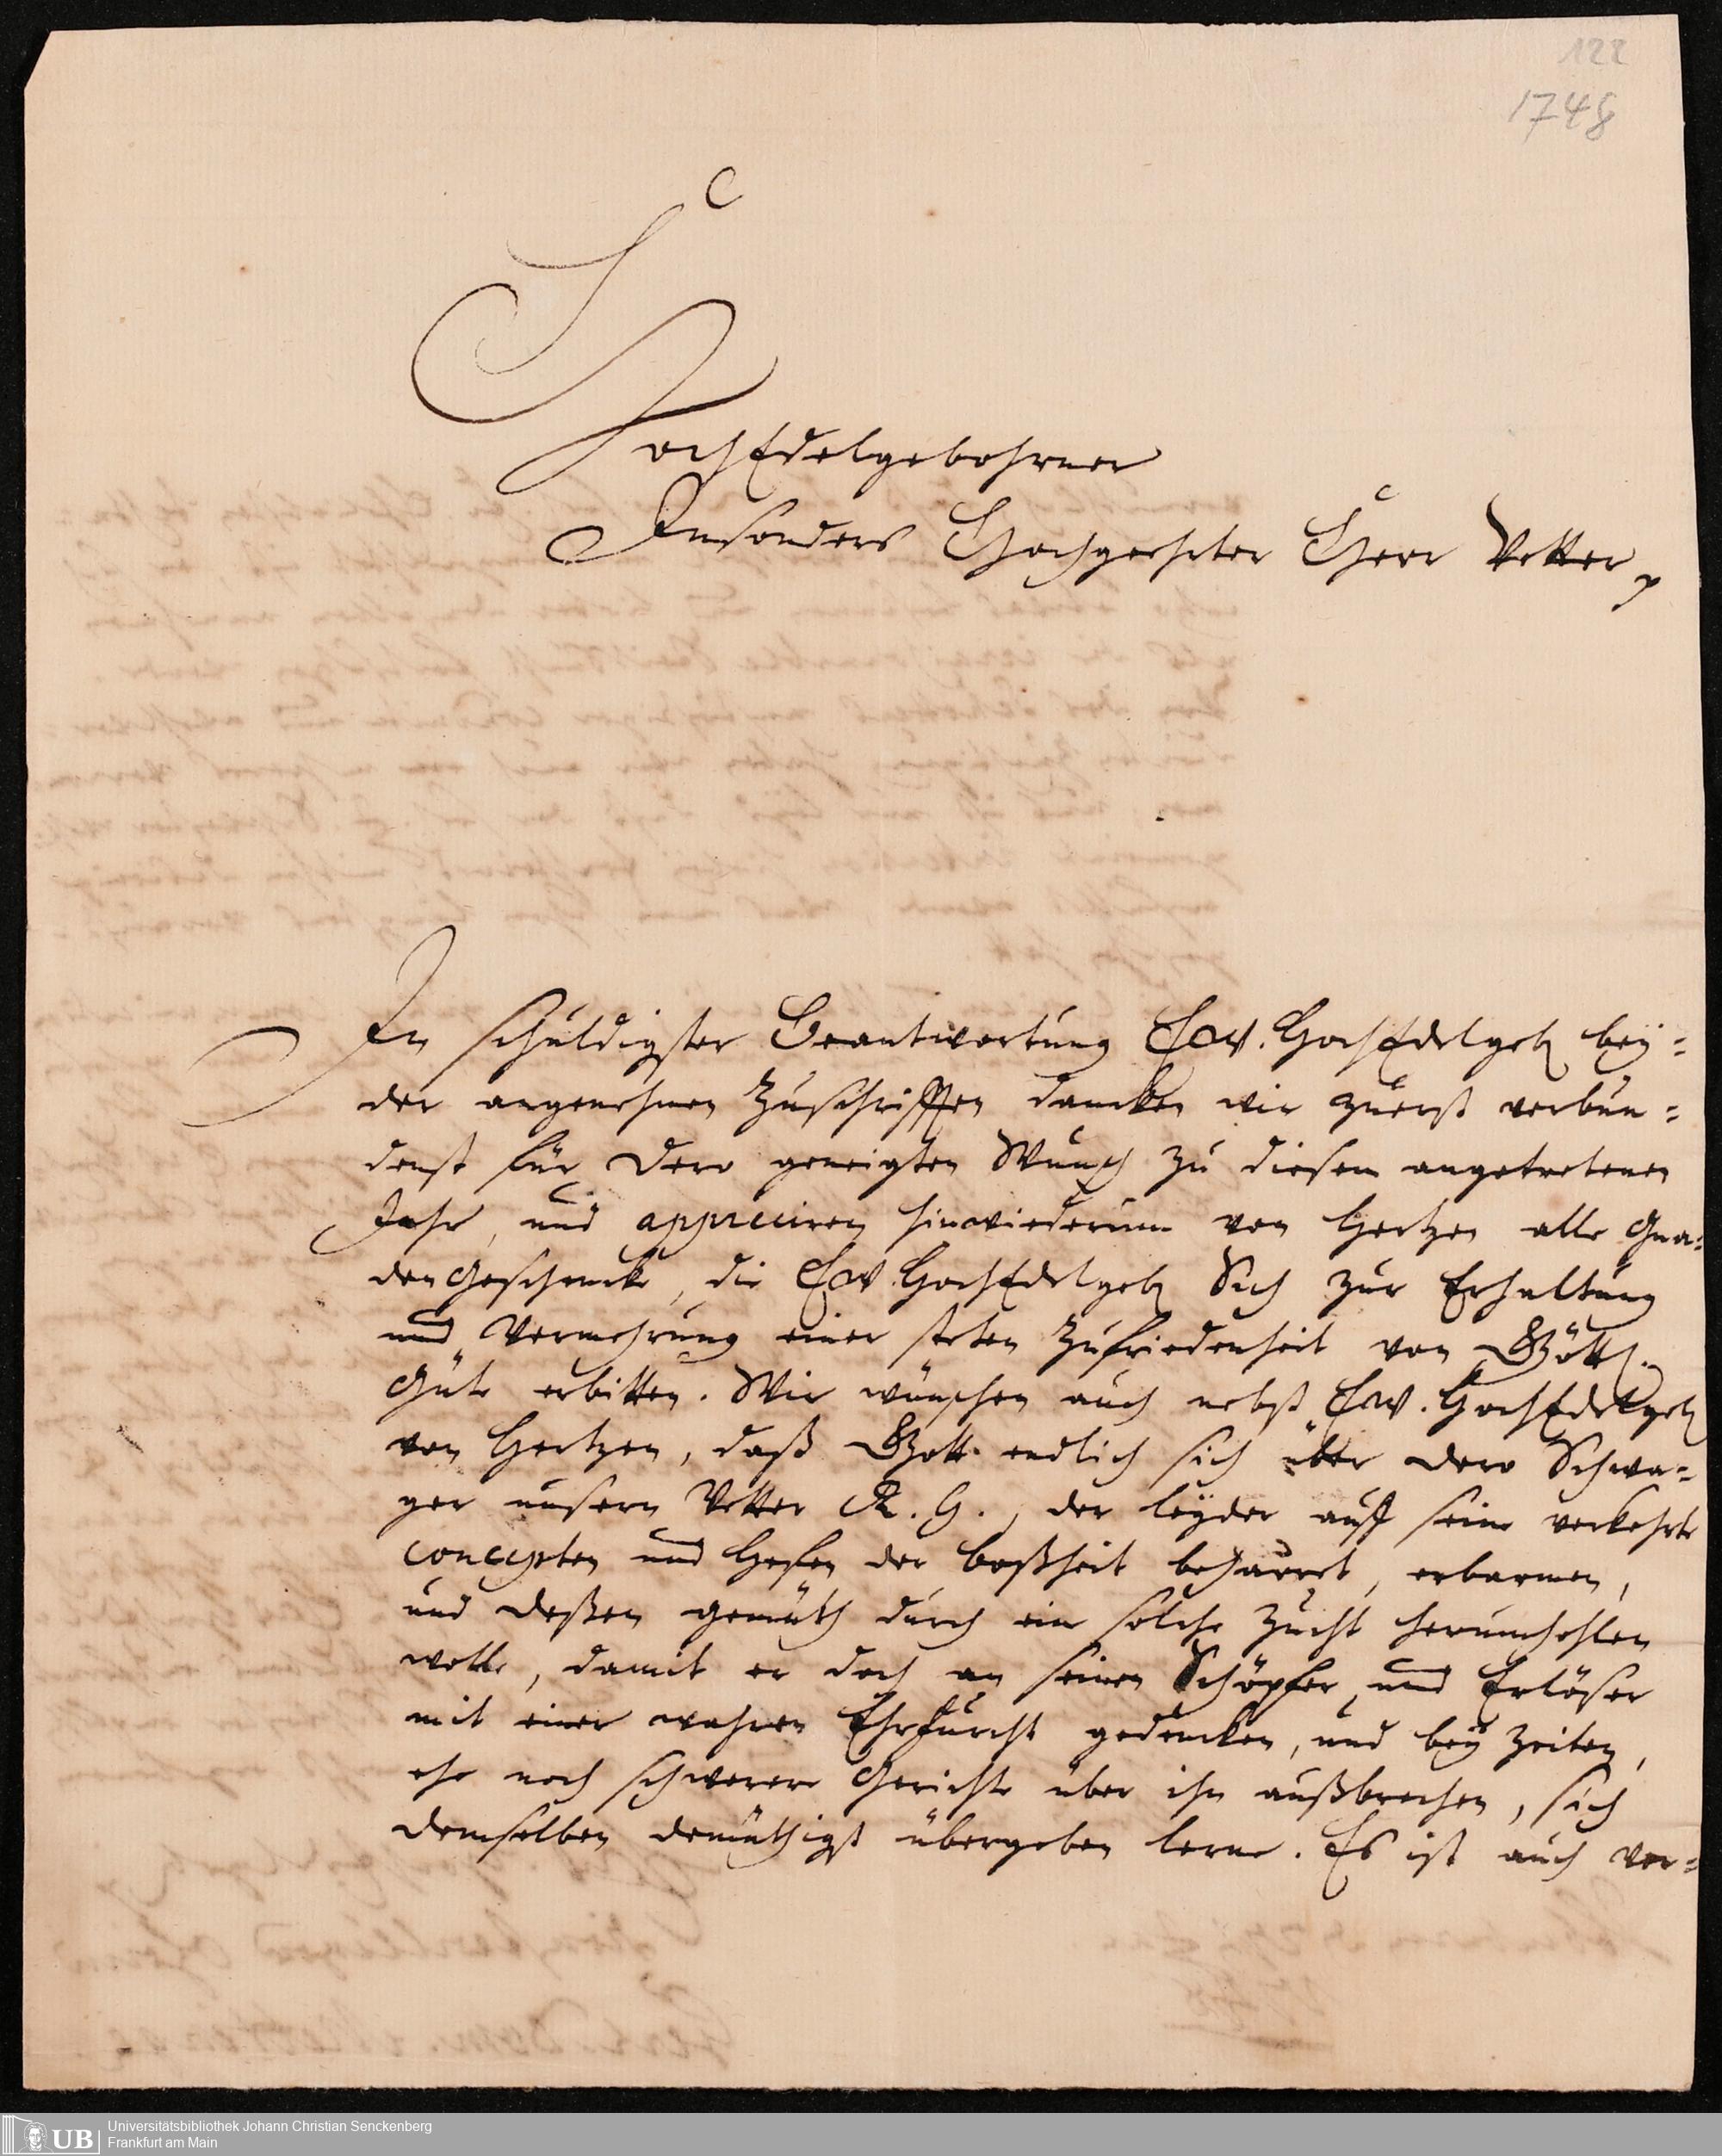 122
1748
HochEdelgebohrner
Insonders Hochgeehrter Herr Vetter
In schuldigster Beantwortung Ew. HochEdelgeb bey=
der angenehmen Zuschrifften dancken wir zuerst verbun=
denst für Dero geneigten Wunsch zu diesem angetretenen
Jahr, und appreciren hinwiederum von Hertzen alle Gna=
denGeschencke, die Ew. HochEdelgeb Sich zur Erhaltung
und Vermehrung einer steten Zufriedenheit von Göttl.
Güte erbitten. Wir wünschen auch nebst Ew. HochEdelgeb
von Hertzen, daß Gott endlich sich über dero Schwa=
ger unsern Vetter R. G., der leyder auff seine verkehrte
concepten und Hefen der boßheit beharret, erbarmen,
und deßen gemüth durch eine solche Zucht herumhohlen
wolle, damit er doch an seinen Schöpfer und Erlöser
mit einer wahren Ehrfurcht gedencken, und bey Zeiten,
ehe noch schwerere Gerichte über ihn außbrechen, sich
demselben demüthigst übergeben lerne. Es ist auch ver=
UB
Universitätsbibliothek Johann Christian Senckenberg
Frankfurt am Main